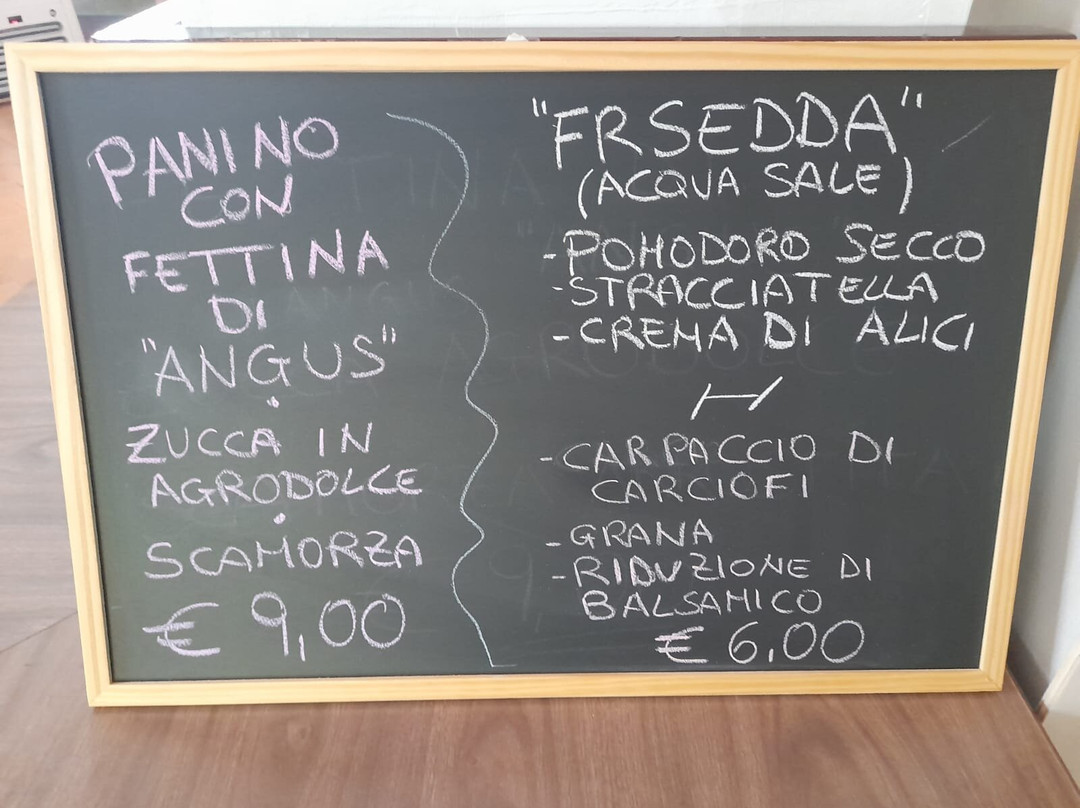 PANINO
CON
FETTINA
DI
"ANGUS"
•
ZUCCA IN
AGRODOLCE
•
SCAMORZA
€ 9,00
"FRSEDDA"
(ACQUA SALE)
-POMODORO SECCO
-STRACCIATELLA
-CREMA DI ALICI
-CARPACCIO DI
CARCIOFI
-GRANA
-RIDUZIONE DI
BALSAMICO
€ 6,00